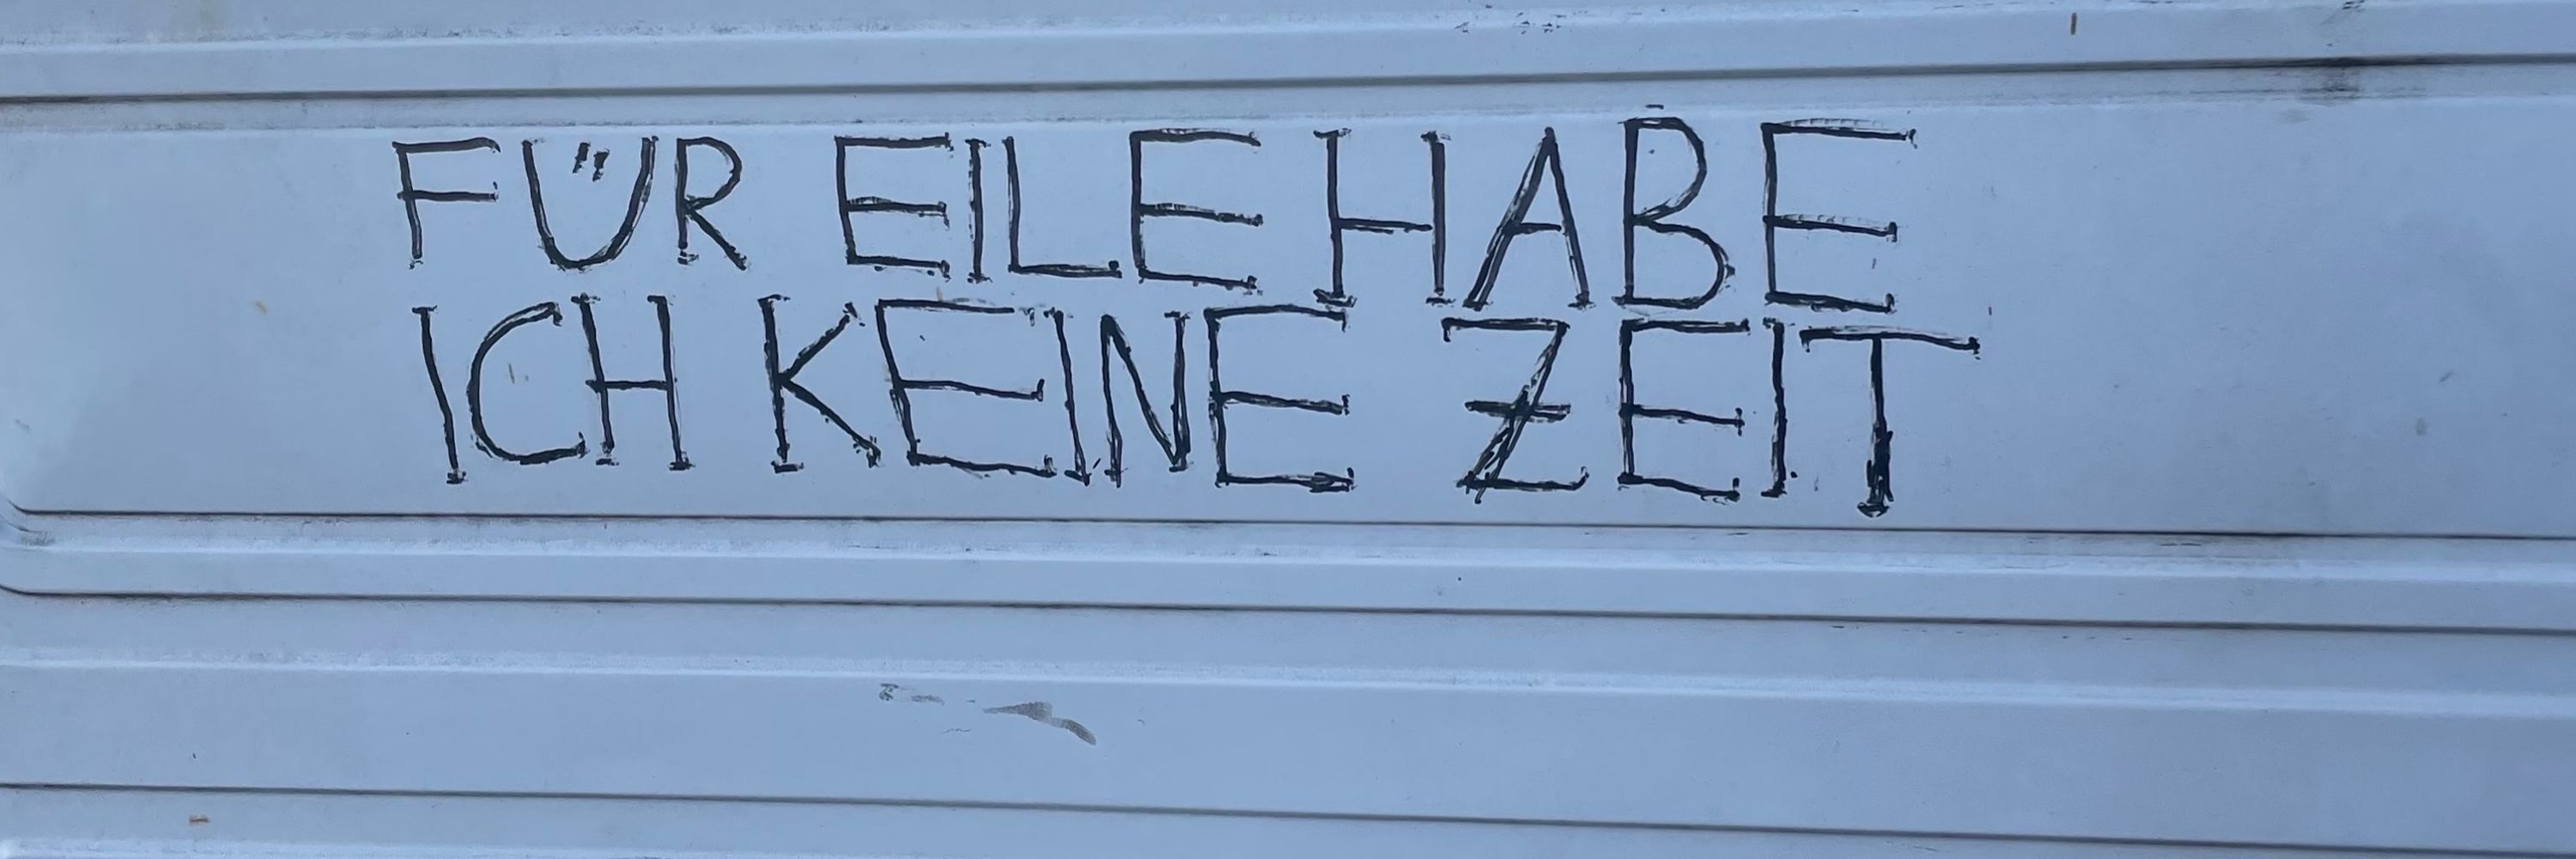 FÜR EILE HABE
ICH KEINE ZEIT